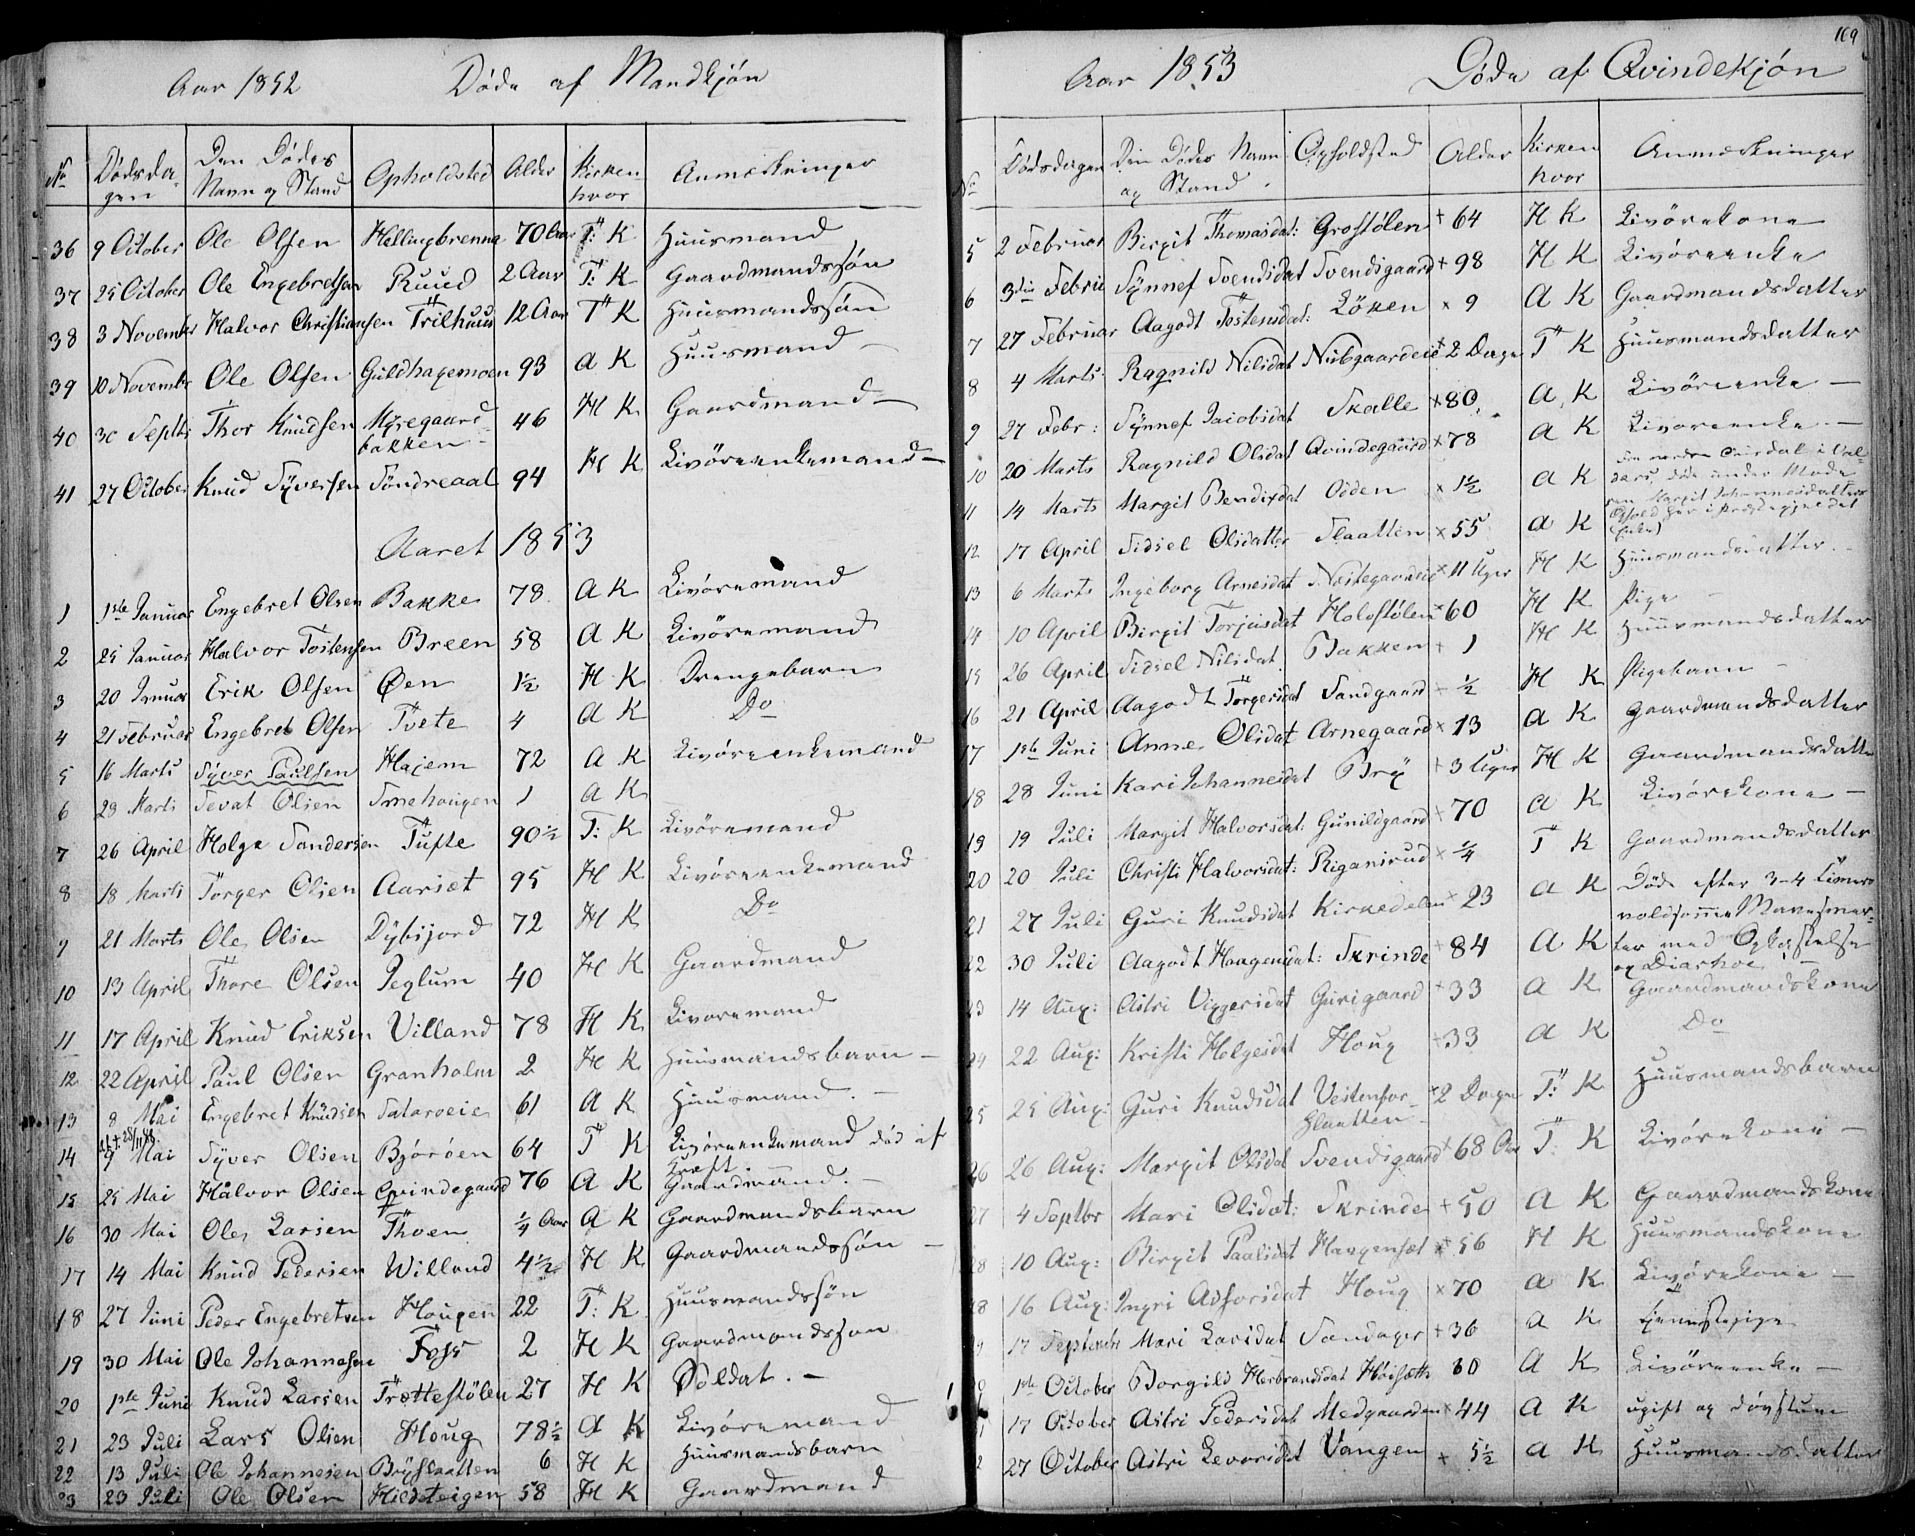 169
Aar 1852 Døde af Mandkjøn
No Dødsdagen Den Dødes Navn og Stand Opholdsted Alder Kirken hvor Anmerkninger
36 9 October Ole Olsen Hellingbrenna 70 Aar T: K Huusmand
37 25 October Ole Engebretsen Ruud 2 Aar T: K Gaardmandssøn
38 3 November Halvor Christiansen Trilhuus 12 Aar T K Huusmandssøn
39 10 Novembr Ole Olsen Guldhagemoen 93 A K Huusmand
40 30 Septbr Thor Knudsen Myregaardbakken 46 H K Gaardmand
41 27 October Knud Syversen Søndreaal 94 H K Livøreenkemand
Aaret 1853
1 1ste Januar Engebret Olsen Bakke 78 A K Livøremand
2 25 Januar Halvor Tostensen Breen 58 A K Livøremand
3 20 Januar Erik Olsen Øen 1½ H K Drengebarn
4 21 Februar Engebret Olsen Tvete 4 A K Do
5 16 Marts Syver Paulsen Hajem 72 A K Livøreenkemand
6 28 Marts Sevat Olsen Smehougen 1 A K
7 26 April Holge Sandersen Tufte 90½ T: K Livøremand
8 18 Marts Torger Olsen Aarset 95 H K Livøreenkemand
9 21 Marts Ole Olsen Dybsjord 72 H K Do
10 13 April Thore Olsen Peglum 40 H K Gaardmand
11 17 April Knud Eriksen Villand 78 H K Livøremand
12 22 April Paul Olsen Granholm 2 H K Huusmandsbarn
13 8 Mai Engebret Knudsen Sataroeie 61 A K Huusmand
14 9 Mai Syver Olsen Bjøröen 64 T K Livøreenkemand død af Kræft
15 25 Mai Halvor Olsen Qvindegaard 76 A K Gaardmand
16 30 Mai Ole Larsen Thoen ¼ Aar A K Gaardmandsbarn
17 14 Mai Knud Pedersen Willand 4½ H K Gaardmandssøn
18 27 Juni Peder Engebretsen Hougen 22 T: K Huusmandssøn
19 30 Mai Ole Johannesen Foss 2 H K Gaardmandssøn
20 1ste Juni Knud Larsen Trættestølen 27 H K Soldat
21 23 Juli Lars Olsen Houg 78½ A K Livøremand
22 13 Juli Ole Johannesen Bryslaatten 6 H K Huusmandsbarn
23 23 Juli Ole Olsen Hildeteigen 58 H K Gaardmand
Aar 1853 Døde af Qvindekjøn
No Dødsdagen Den Dødes Navn og Stand Opholdsted Alder Kirken hvor Anmerkninger
5 2 Februar Birgit Thomasdat: Grostølen + 64 H K Livørekone
6 3die Februar Synnef Svendsdat Svendsgaard + 98 H K Livøreenke
7 27 Februar Aagodt Tostensdat: Løken × 9 A K Gaardmandsdatter
8 4 Marts Ragnild Nilsdat Nubgaardeie × 2 Dage T K Huusmandsdatter
9 27 Febr: Synnef Jacobsdat Skalle × 80 A K Livøreenke
10 20 Marts Ragnild Olsdat Qvindegaard × 78 A K Livøreenke
11 14 Marts Margit Bendixdat Odden × 1½ A K
12 17 April Sidsel Olsdatter Slaatten × 55 A K
13 6 Marts Ingeborg Arnesdat Næstegaardeie × 11 Uger H K Huusmandsdatter
14 10 April Birgit Torjusdat Holostølen × 60 H K Pige
15 26 April Sidsel Nilsdat Bakken + 1 H K Huusmandsdatter
16 21 April Aagodt Torgersdat Sandgaard + ½ H K Pigebarn
17 1ste Juni Anne Olsdat Arnegaard × 13 A K Gaardmandsdatter
18 28 Juni Kari Johannesdat Bry + 3 Uger H K Gaardmandsdatter
19 19 Juli Margit Halvorsdat: Gunildgaard + 70 A K Livørekone
20 20 Juli Christi Halvorsdat: Riganisrud × ¼ T K Gaardmandsdatter
21 27 Juli Guri Knudsdat Kirkedelen × 23 A K Døde efter 3-4 Timers voldsomme Mavesmerter med Opkastelse og Diarhoe
22 30 Juli Aagodt Haagensdat: Skrinde + 84 A K
23 14 Aug: Astri Viggersdat Gurigaard + 33 A K Gaardmandskone
24 22 Aug: Kristi Helgesdat Houg + 33 A K Do
25 25 Aug: Guri Knudsdat Vestenforslaatten × 2 Dage T: K Huusmandsbarn
26 26 Aug: Margit Olsdat Svendsgaard × 68 Aar T: K Livørekone
27 4 Septbr Mari Olsdat: Skrinde + 50 A K Gaardmandskone
28 10 Aug: Birgit Paalsdat Haugensæt × 56 H K Huusmandskone
28 16 Aug: Ingri Asforsdat Houg × 70 A K Livørekone
17 Septembr Mari Larsdat Sandager + 36 A K Tjenestepige
1ste October Borgild Herbrandsdat Høisæth 80 A K Livøreenke
17 October Astri Pedersdat Medgaarden × 44 A K ugift og døvstum
27 October Astri Levorsdat Vangen + 5½ A K Huusmandsdatter